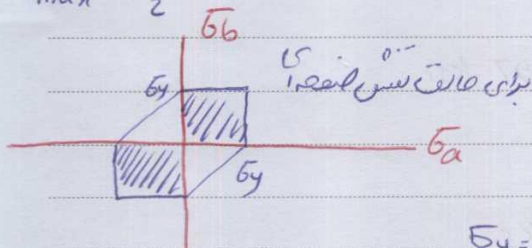 max 2
σb
برای حالت تنش صفحه‌ای
σy
σa
σy
σy =